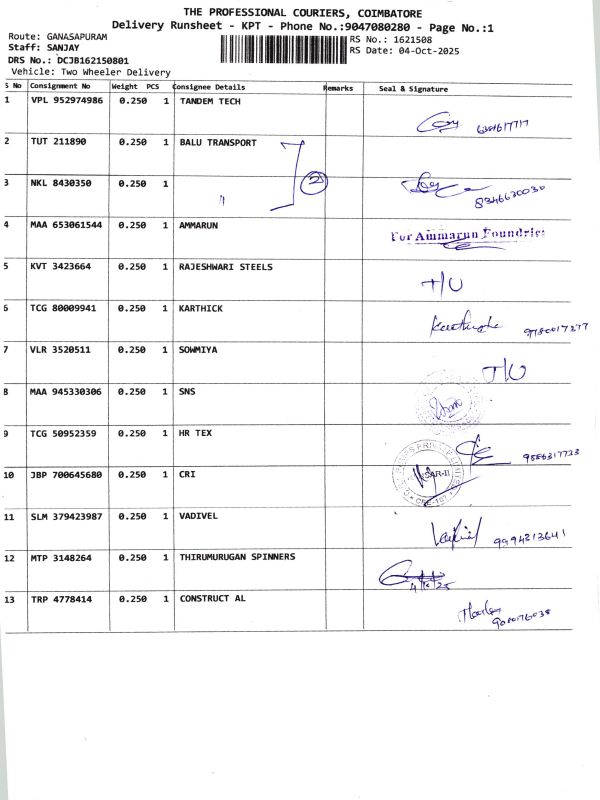 THE PROFESSIONAL COURIERS, COIMBATORE
Delivery Runsheet - KPT - Phone No.:9047080280 - Page No.:1
Route: GANASAPURAM
RS No.: 1621508
Staff: SANJAY
RS Date: 04-Oct-2025
DRS No.: DCJB162150801
Vehicle: Two Wheeler Delivery
S No Consignment No Weight PCS Consignee Details Remarks Seal & Signature
1 VPL 952974986 0.250 1 TANDEM TECH
2 TUT 211890 0.250 1 BALU TRANSPORT
3 NKL 8430350 0.250 1 " 2
8346620030
4 MAA 653061544 0.250 1 AMMARUN
For Ammarun Foundries
5 KVT 3423664 0.250 1 RAJESHWARI STEELS
T/U
6 TCG 80009941 0.250 1 KARTHICK
7 VLR 3520511 0.250 1 SOWMIYA
T/U
8 MAA 945330306 0.250 1 SNS
9 TCG 50952359 0.250 1 HR TEX
10 JBP 700645680 0.250 1 CRI
11 SLM 379423987 0.250 1 VADIVEL
9994213641
12 MTP 3148264 0.250 1 THIRUMURUGAN SPINNERS
13 TRP 4778414 0.250 1 CONSTRUCT AL